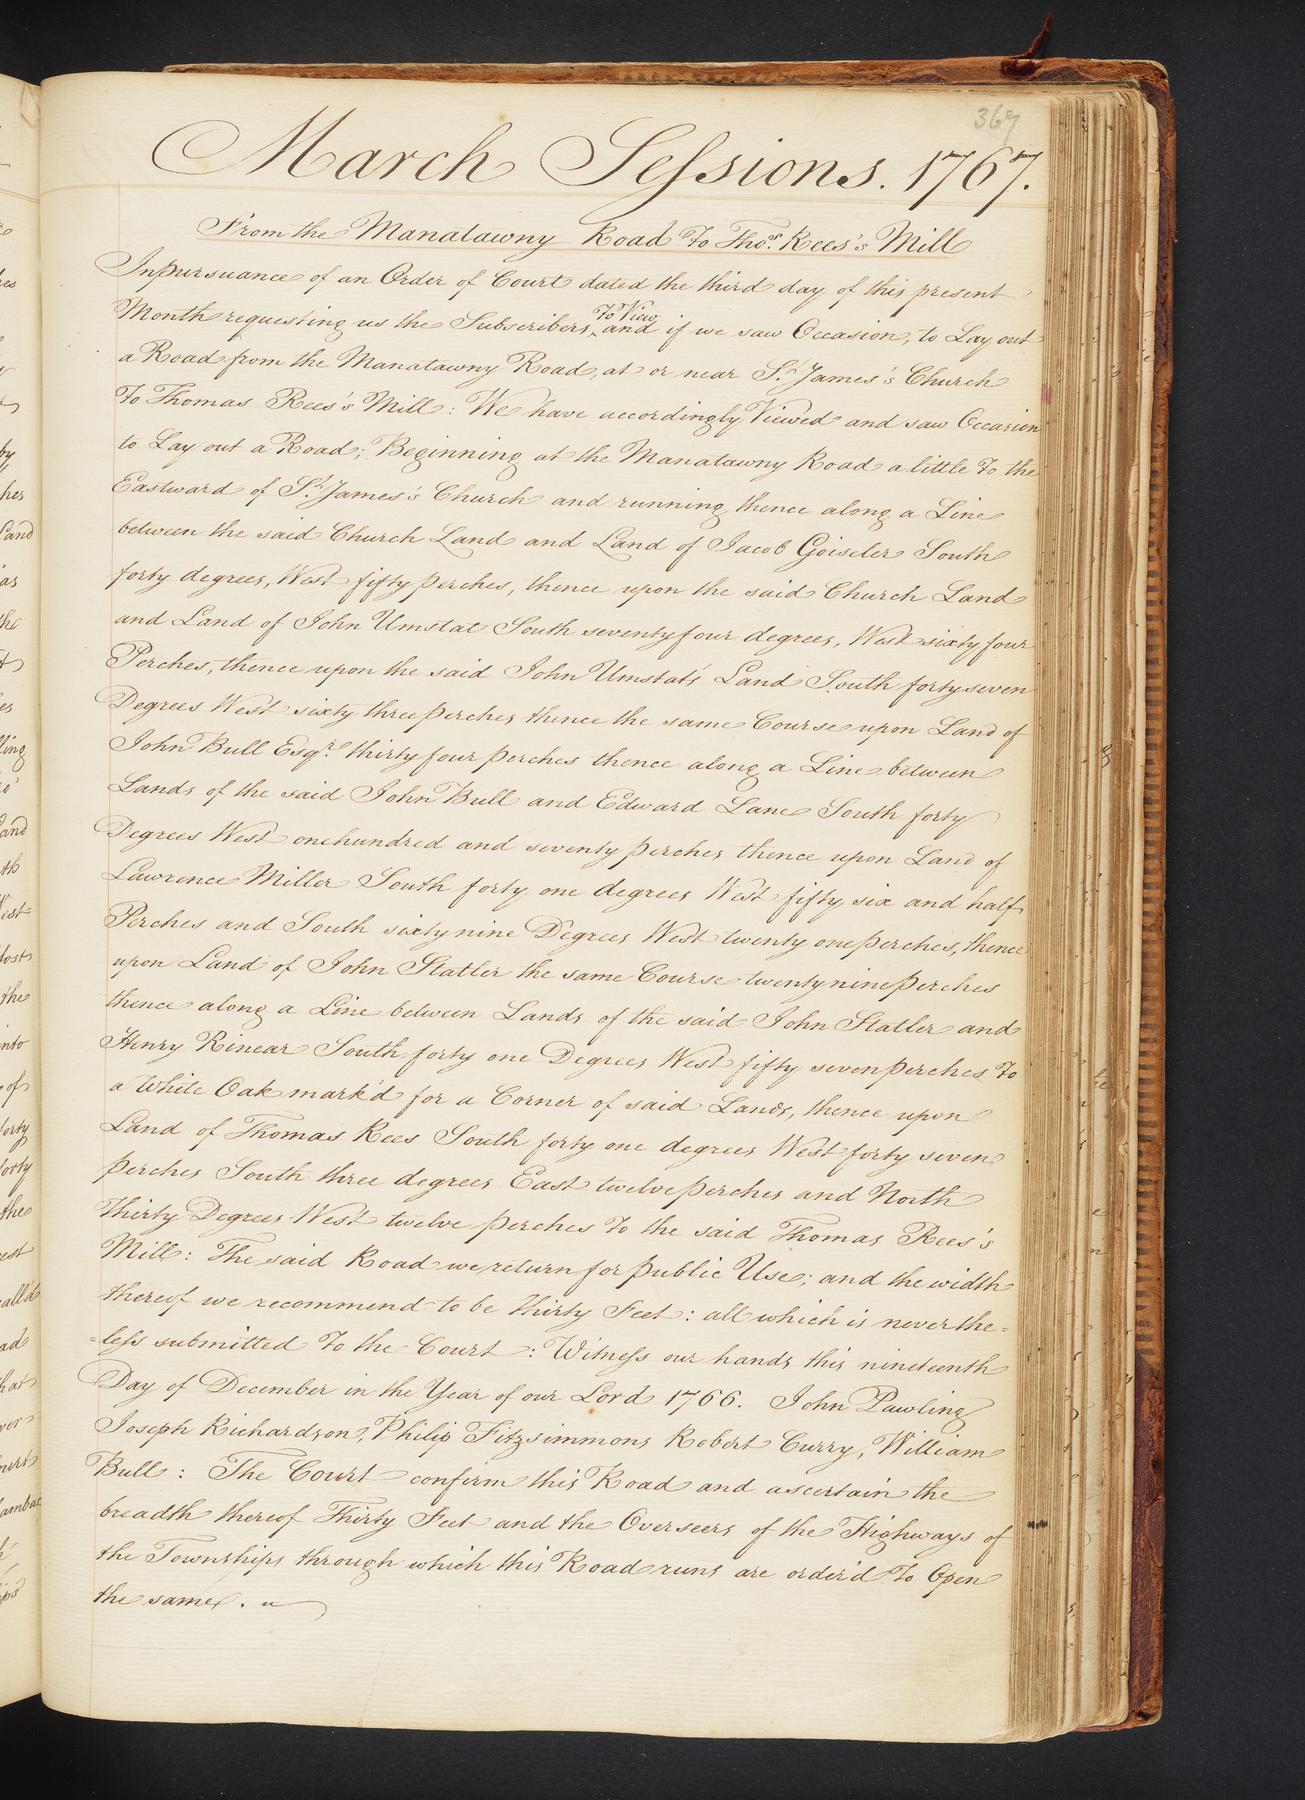 367
March Seſsions. 1767.
From the Manatawny Road To Thos. Rees's Mill
In pursuance of an Order of Court dated the third day of this present
To View
Month requesting us the Subscribers, and if we saw Occasion, to Lay out
a Road from the Manatawny Road, at or near St. James's Church
To Thomas Rees's Mill: We have accordingly Viewed and saw Occasion
to Lay out a Road; Beginning at the Manatawny Road a little To the
Eastward of St. James's Church and running thence along a Line
between the said Church Land and Land of Jacob Goiseler South
forty degrees, West fifty perches, thence upon the said Church Land
and Land of John Umstat South seventy four degrees, West sixty four
Perches, thence upon the said John Umstat's Land South forty seven
Degrees West sixty three perches thence the same Course upon Land of
John Bull Esqr. thirty four perches thence along a Line between
Lands of the said John Bull and Edward Lane South forty
Degrees West one hundred and seventy perches thence upon Land of
Lawrence Miller South forty one degrees West fifty six and half
Perches and South sixty nine Degrees West twenty one perches, thence
upon Land of John Statler the same Course twenty nine perches
thence along a Line between Lands of the said John Statler and
Henry Rinear South forty one Degrees West fifty seven perches To
a White Oak mark'd for a Corner of said Lands, thence upon
Land of Thomas Rees South forty one degrees West forty seven
perches South three degrees East twelve perches and North
Thirty Degrees West twelve perches To the said Thomas Rees's
Mill: The said Road we return for public Use; and the width
thereof we recommend to be Thirty Feet: all which is never the=
=leſs submitted To the Court: Witneſs our hands this nineteenth
Day of December in the Year of our Lord 1766. John Pawling
Joseph Richardson, Philip Fitzsimmons Robert Curry, William
Bull: The Court confirm this Road and ascertain the
breadth thereof Thirty Feet and the Overseers of the Highways of
the Townships through which this Road runs are order'd To Open
the same.